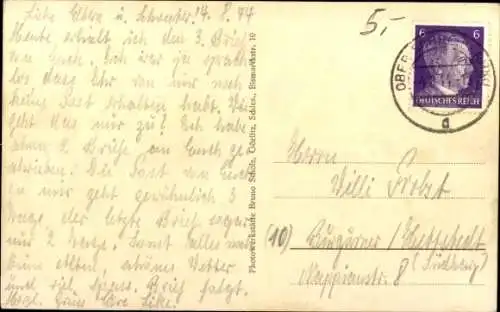 Liebe Eltern u. Schwester! 14.8.44
Heute erhalt ich den 3. Brief
von Euch. Ich war ja
das Ihr von mir noch
keine Post erhalten habt. Wie
geht das nur zu? Ich habe
schon 9. Briefe an Euch ge-
schrieben. Die Post von Euch
zu mir geht gewöhnlich 3
Tage, der letzte Brief sogar
nur 2 Tage. Sonst alles
beim Alten, schönes Wetter
und viel Brief folgt.
Herzl. Grüße Eure
5,-
6
DEUTSCHES REICH
OBER
a
Photowerkstätte Bruno Scholz, Ödelitz, Schles., Bismarckstr. 10
Herrn
Willi Probst
(10) Burgörner / Hettstedt
8 (Südharz)